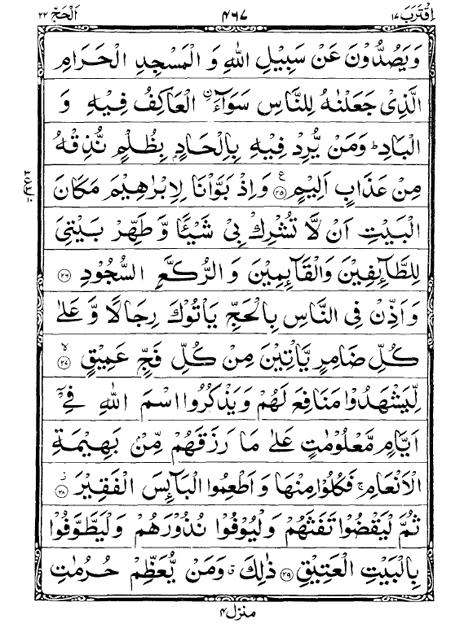 اقترب ١٧ ٤٦٧ الحج ٢٢
وَيَصُدُّوْنَ عَنْ سَبِيْلِ اللّٰهِ وَ الْمَسْجِدِ الْحَرَامِ
الَّذِىْ جَعَلْنٰهُ لِلنَّاسِ سَوَآءَ ۨ الْعَاكِفُ فِيْهِ وَ
الْبَادِ ؕ وَمَنْ يُّرِدْ فِيْهِ بِاِلْحَادٍۭ بِظُلْمٍ نُّذِقْهُ
مِنْ عَذَابٍ اَلِيْمٍ ۟ۧ ٢٥ وَاِذْ بَوَّاْنَا لِاِبْرٰهِيْمَ مَكَانَ
الْبَيْتِ اَنْ لَّا تُشْرِكْ بِىْ شَيْئًا وَّ طَهِّرْ بَيْتِىَ
لِلطَّآئِفِيْنَ وَالْقَآئِمِيْنَ وَ الرُّكَّعِ السُّجُوْدِ ٢٦
وَ اَذِّنْ فِى النَّاسِ بِالْحَجِّ يَاْتُوْكَ رِجَالًا وَّ عَلٰى
كُلِّ ضَامِرٍ يَّاْتِيْنَ مِنْ كُلِّ فَجٍّ عَمِيْقٍ ۙ ٢٧
لِّيَشْهَدُوْا مَنَافِعَ لَهُمْ وَيَذْكُرُوا اسْمَ اللّٰهِ فِىْۤ
اَيَّامٍ مَّعْلُوْمٰتٍ عَلٰى مَا رَزَقَهُمْ مِّنْۢ بَهِيْمَةِ
الْاَنْعَامِ ۚ فَكُلُوْا مِنْهَا وَ اَطْعِمُوا الْبَآئِسَ الْفَقِيْرَ ؗ ٢٨
ثُمَّ لْيَقْضُوْا تَفَثَهُمْ وَلْيُوْفُوْا نُذُوْرَهُمْ وَلْيَطَّوَّفُوْا
بِالْبَيْتِ الْعَتِيْقِ ٢٩ ذٰلِكَ ۗ وَمَنْ يُّعَظِّمْ حُرُمٰتِ
منزل ٤